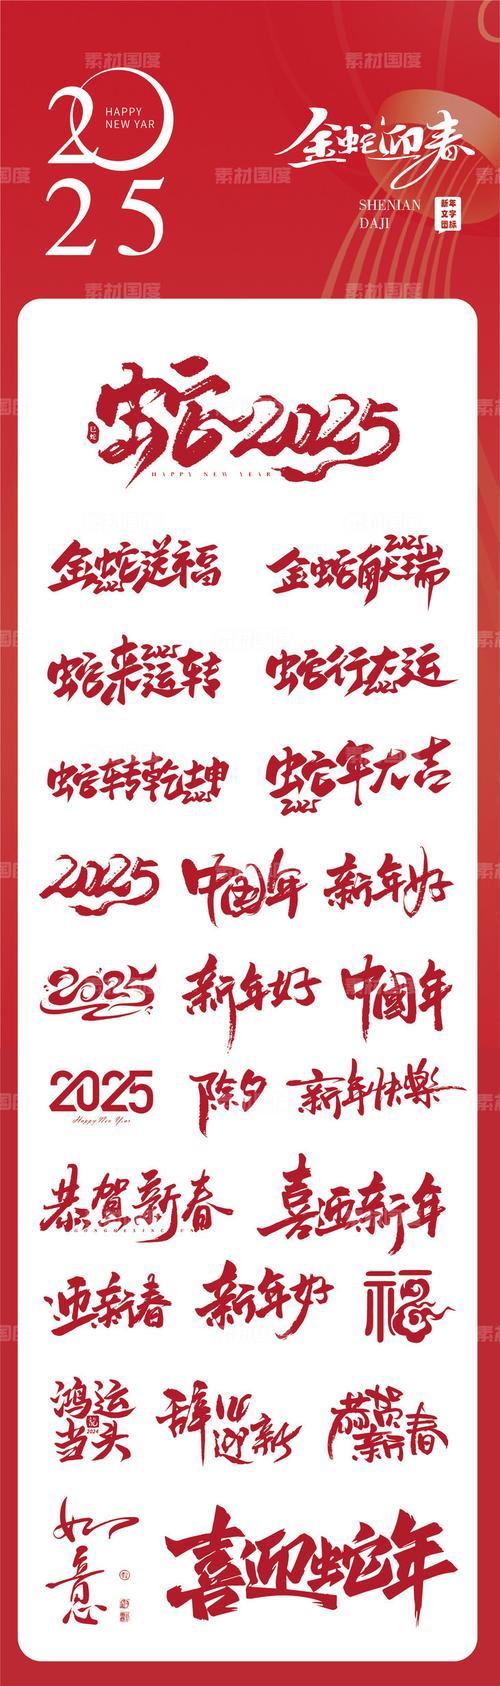 素材国度
2025
HAPPY
NEW YAR
金蛇迎春
SHENIAN
DAJI
新年
文字
图标
蛇2025
巳蛇
HAPPY NEW YEAR
金蛇送福
2025
金蛇献瑞
2025
蛇来运转
2025
蛇行大运
2025
蛇转乾坤
2025
蛇年大吉
2025
2025
中国年
新年好
2025
新年好
中國年
2025
Happy New Year
除夕
新年快樂
恭賀新春
GONGHEXINCHUN
喜迎新年
迎新春
新年好
福
鸿运
当头
龍
2024
辞旧
迎新
恭贺
新春
如意
喜迎蛇年